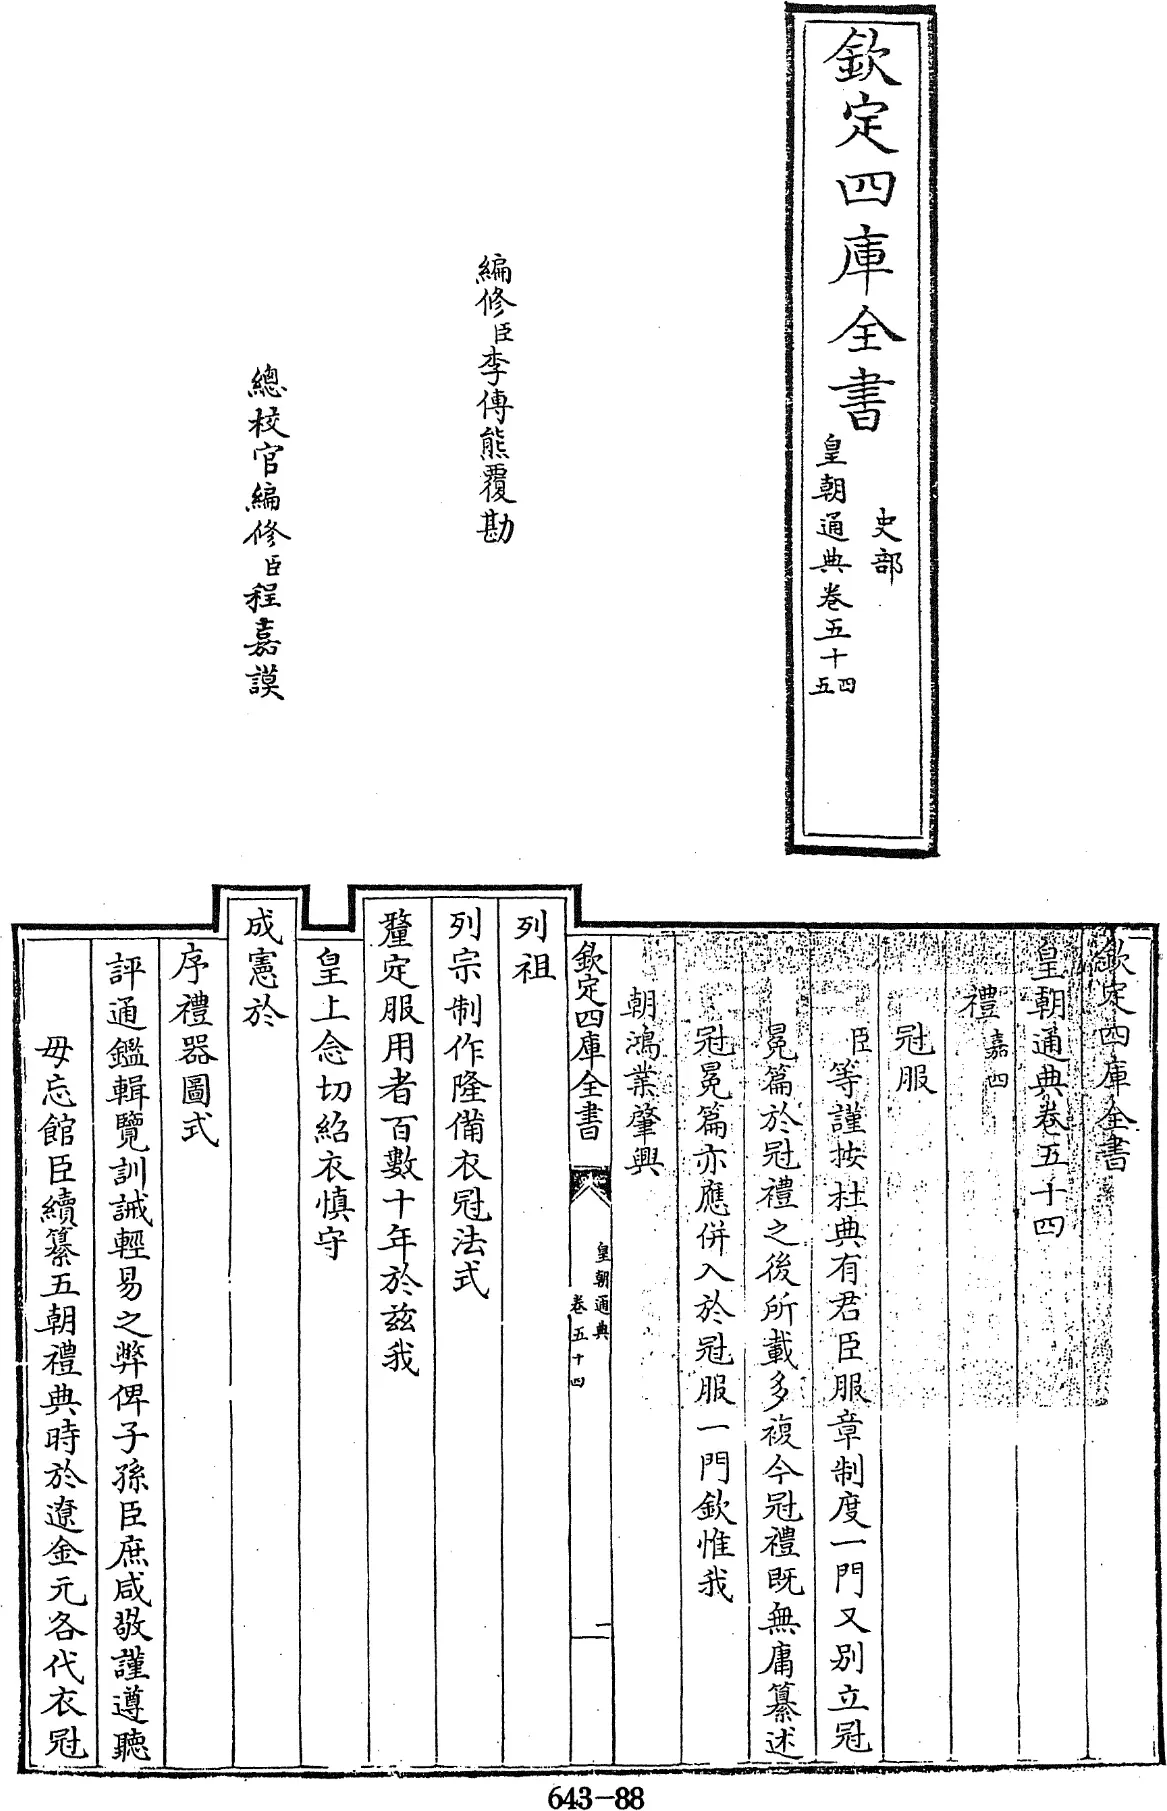 欽定四庫全書
史部
皇朝通典卷五十四
五
編修臣李傳熊覆勘
總校官編修臣程嘉謨
欽定四庫全書
皇朝通典卷五十四
禮嘉四
冠服
臣等謹按杜典有君臣服章制度一門又别立冠
冕篇於冠禮之後所載多複今冠禮既無庸纂述
冠冕篇亦應併入於冠服一門欽惟我
朝鴻業肇興
欽定四庫全書
皇朝通典
卷五十四
一
列祖
列宗制作隆備衣冠法式
釐定服用者百數十年於兹我
皇上念切紹衣慎守
成憲於
序禮器圖式
評通鑑輯覽訓誡輕易之弊俾子孫臣庶咸敬謹遵聽
毋忘館臣續纂五朝禮典時於遼金元各代衣冠
643-88